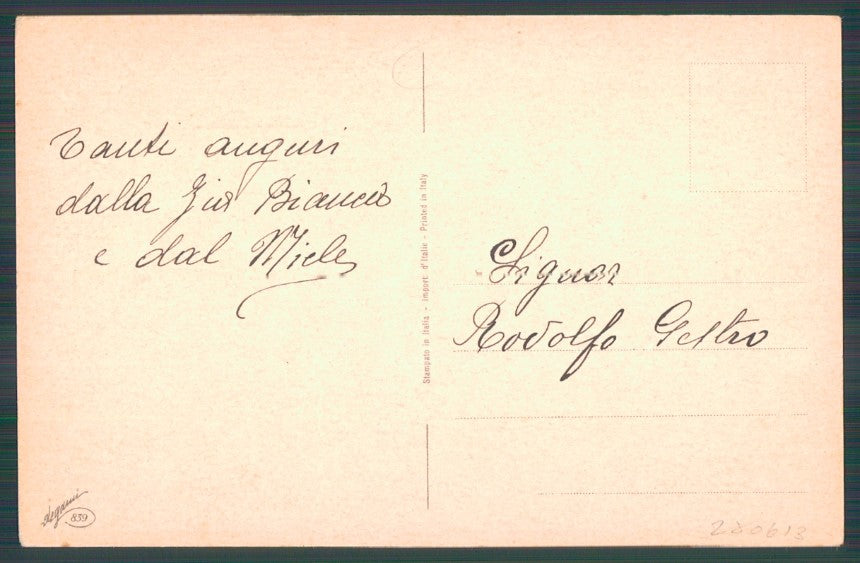 Tanti auguri
dalla Zia Bianca
e dal Miele
Stampato in Italia - Import. d'Italie - Printed in Italy
Signor
Rodolfo Geltro
Degami
859
220613